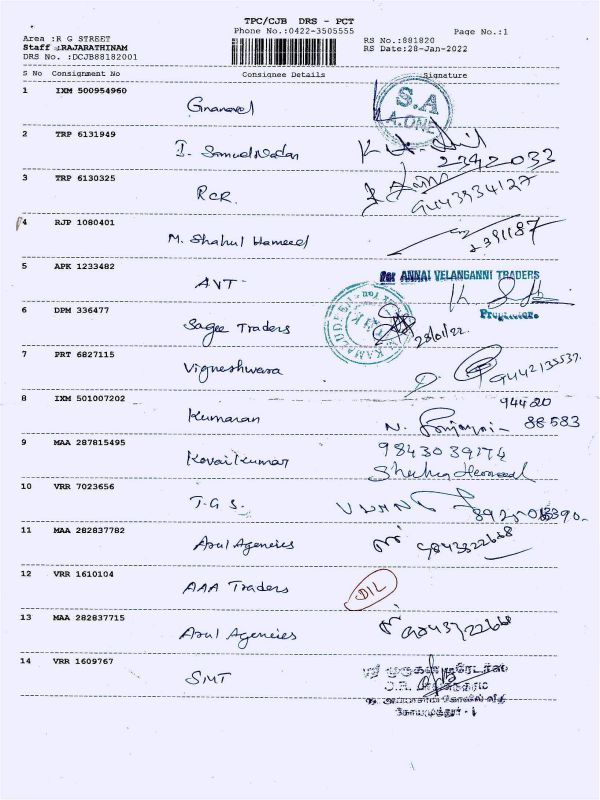 TPC/CJB DRS - PCT
Phone No.:0422-3505555 Page No.:1
Area :R G STREET RS No.:881820
Staff :RAJARATHINAM RS Date:28-Jan-2022
DRS No. :DCJB88182001
S No Consignment No Consignee Details Signature
1 IXM 500954960 Gnanavel S.A A.ONE
2 TRP 6131949 I. Samuel Nadar 2392033
3 TRP 6130325 RCR. 9443934127
4 RJP 1080401 M. Shahul Hameed 2391187
5 APK 1233482 AVT For ANNAI VELANGANNI TRADERS
Proprietor.
6 DPM 336477 Sagee Traders 28/01/22.
7 PRT 6827115 Vigneshwara 9442135537.
8 IXM 501007202 Kumaran N. 94420 88583
9 MAA 287815495 Kovai Kumar 9843039174
10 VRR 7023656 T.G.S.
11 MAA 282837782 Arul Agencies 9843722668
12 VRR 1610104 AAA Traders DIL
13 MAA 282837715 Arul Agencies 9843722668
14 VRR 1609767 SMT ஸ்ரீ முருகன் டிரேடர்ஸ்
கோயமுத்தூர் - 1